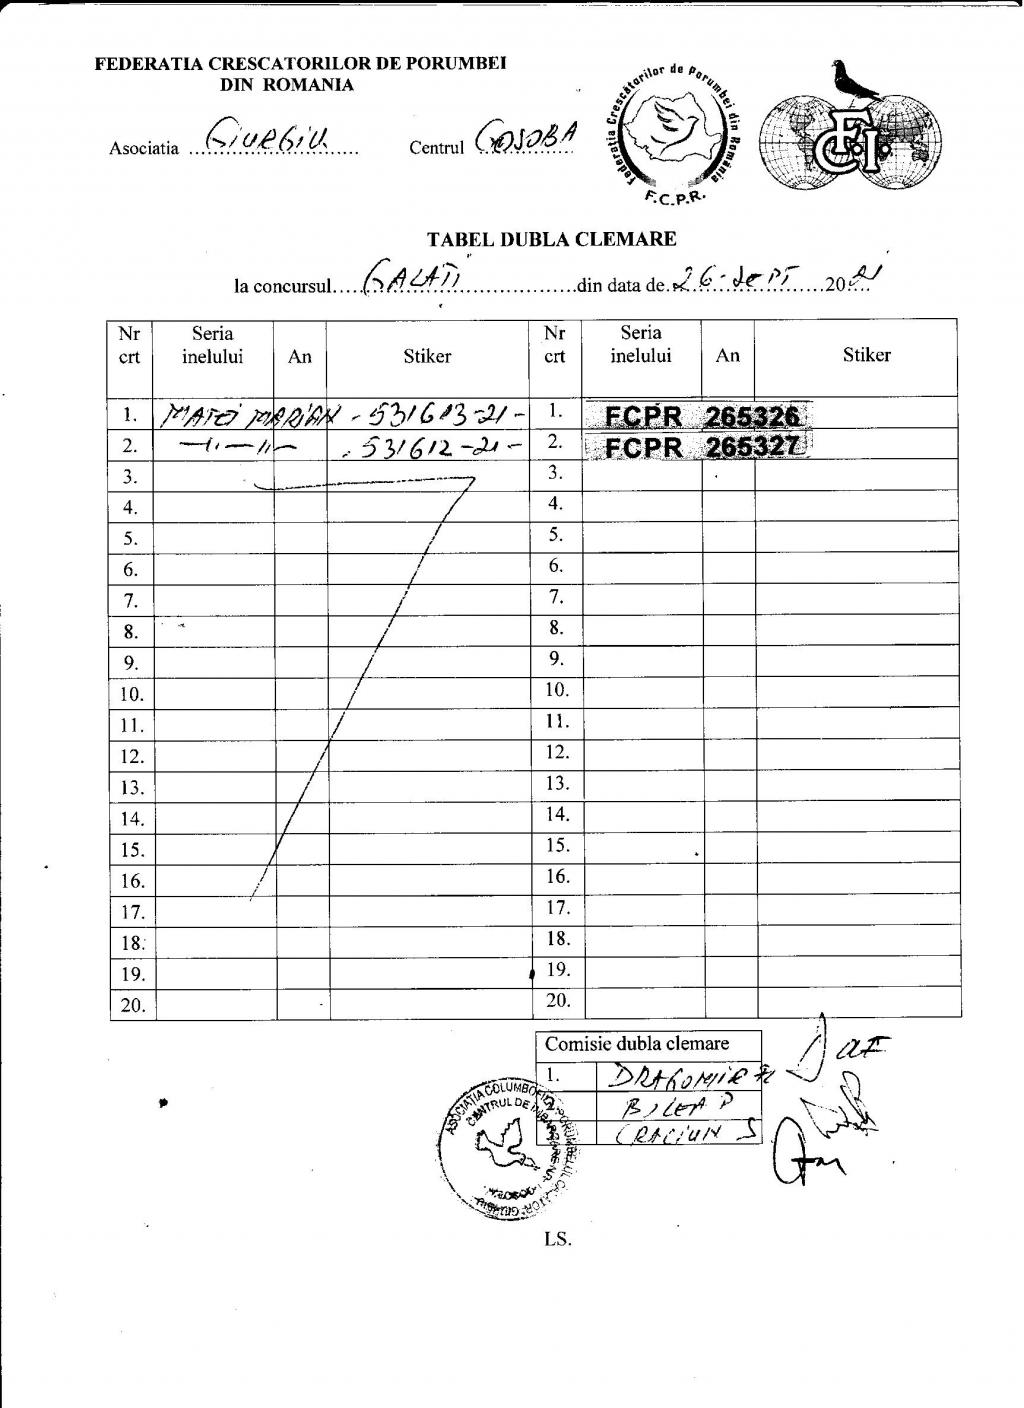 FEDERATIA CRESCATORILOR DE PORUMBEI
DIN ROMANIA
Asociatia GIURGIU Centrul COSOBA
Federatia Crescătorilor de Porumbei din România
F.C.P.R.
F.C.I.
TABEL DUBLA CLEMARE
la concursul.....GALATI..............................din data de.26-SEPT........2021
Nr crt Seria inelului An Stiker Nr crt Seria inelului An Stiker
1. MATEI MARIAN - 531613-21- 1. FCPR 265326
2. —〃—〃— . 531612-21- 2. FCPR 265327
3. 3.
4. 4.
5. 5.
6. 6.
7. 7.
8. 8.
9. 9.
10. 10.
11. 11.
12. 12.
13. 13.
14. 14.
15. 15.
16. 16.
17. 17.
18. 18.
19. 19.
20. 20.
Comisie dubla clemare
1. DRAGOMIR
BILEA P
CRACIUN S
ASOCIATIA COLUMBOFILA PORUMBELUL CALATOR GIURGIU
CENTRUL DE IMBARCARE NR.
LS.